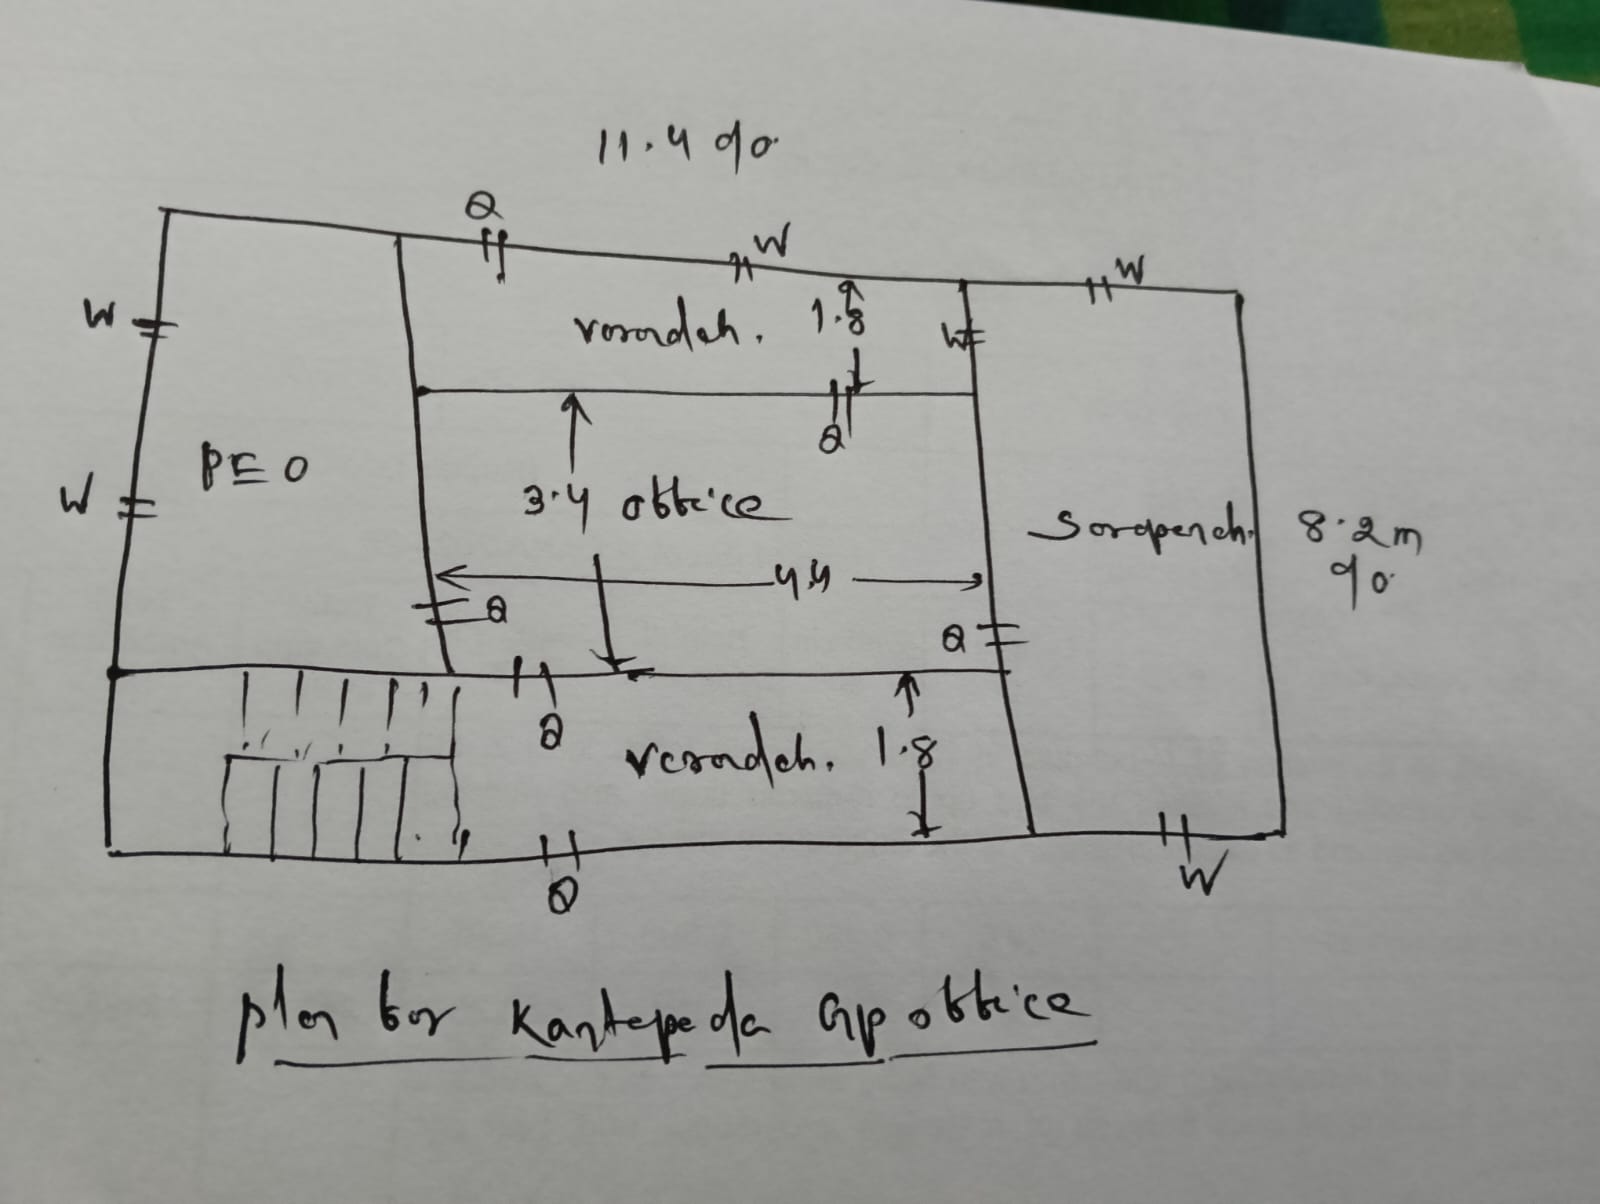 11.4 %
D
W
W
W
verandah. 1.8
W
D
PEO
W
3.4 office
Sarapanch.
8.2m
%
4.4
D
D
D
verandah. 1.8
D
W
plan for Kantepeda Gp office